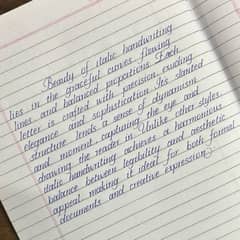 Beauty of italic handwriting
lies in the graceful curves, flowing
lines and balanced proportions. Each
letter is crafted with precision exuding
elegance and sophistication. Its slanted
structure lends a sense of dynamism
and moment, capturing the eye and
drawing the reader in. Unlike other styles,
italic handwriting achieves a harmonious
balance between legibility and aesthetic
appeal making it ideal for both formal
documents and creative expression.